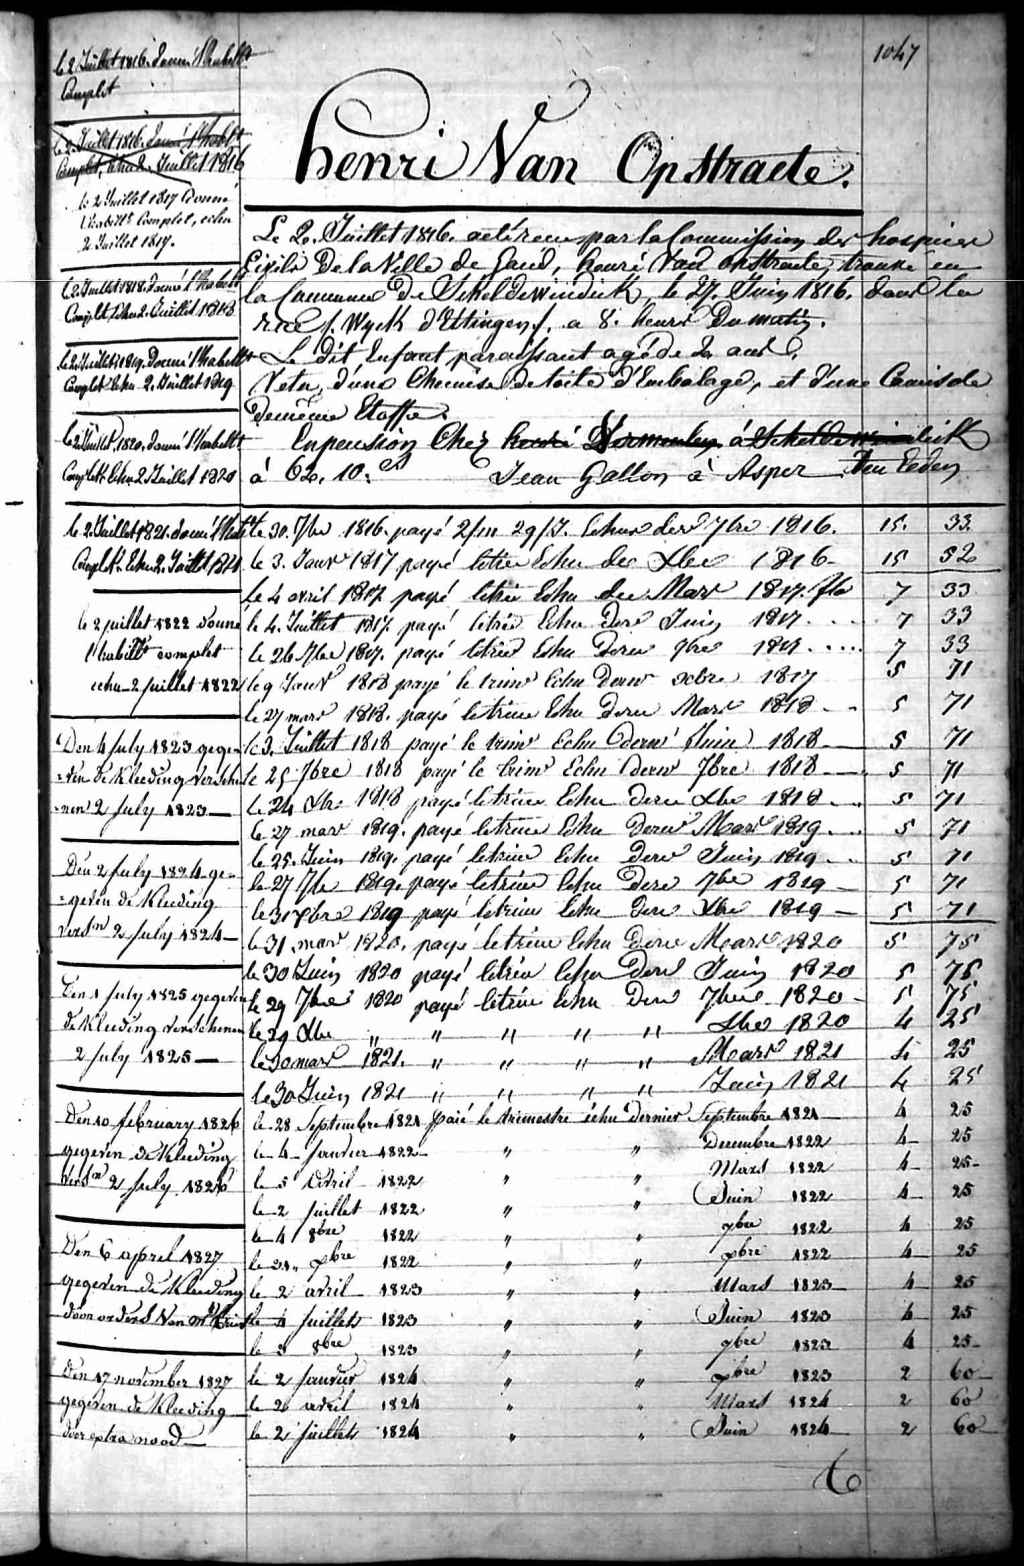 1047
Henri Van Opstraete.
le 2 Juillet 1816. donné l'habillt
Complet
le 2. Juillet 1816. donné l'habillt
Complet, échu le 2. Juillet 1816
le 2 Juillet 1817 donné
l'habillt Complet, echu
2 Juillet 1817.
le 2 Juillet 1818. donné l'habillt
Complet, Echu 2. Juillet 1818
le 2 Juillet 1819. Donné l'habillt
Complet Echu 2. Juillet 1819
le 2 Juillet. 1820. donné l'habillt
Complet Echu 2 Juillet 1820
le 2 Juillet 1821. donné l'habillt
Complet. Echu 2. Juillet 1821
le 2 juillet 1822 donné
l'habillt complet
echu 2 juillet 1822
Den 4 july 1823 gege-
-ven de Kleeding Versche-
-nen 2 july 1823
Den 2 july 1824 ge-
-geven de Kleeding
versn 2 july 1824
Den 1 july 1825 gegeven
de Kleeding verschenen
2 july 1825
Den 10 february 1826
gegeven de Kleeding
versn 2 july 1826
Den 6 april 1827
gegeven de Kleeding
door orders van mr
Den 17 november 1827
gegeven de Kleeding
voor extra nood
Le 2. Juillet 1816. a été reçu par la Commission des hospices
Civils De la Ville de Gand, henri Van Opstraete, trouvé en
la Commune De Scheldewindick, le 27. Juin 1816. dans la
rue f. Wyck d'Ettingen f. a 8. heures Du matin.
Le dit Enfant paraissant agé de 2 ans,
Vetu, d'une Chemise de toile d'Embalage, et d'une Camisole
De même Etoffe.
En pension Chez henri Vermeulen à Scheldewindick
à 62. 10. Cs Jean Gallon à Asper
le 30. 7bre 1816. payé 2/m 29/J. Echus der 7bre 1816. 15. 33
le 3. Janvr 1817 payé letrim Echu der Xbre 1816 15 52
le 4 avril 1817 payé letrim Echu der Mars 1817. 7 33
le 4. Juillet 1817. payé letrim Echu Dernr Juin 1817 7 33
le 26 7bre 1817. payé letrim Echu Dernr 7bre 1817 7 33
le 9 Janvr 1818 payé le trimr Echu Dernr xcbre 1817 5 71
le 27 mars 1818. payé letrim Echu Dernr Mars 1818 5 71
le 3. Juillet 1818 payé le trimr Echu dernr Juin 1818 5 71
le 25 7bre 1818 payé le trimr Echu dernr 7bre 1818 5 71
le 24 Xbre 1818 payé letrim Echu Dernr Xbre 1818 5 71
le 27 mars 1819. payé letrim Echu Dernr Mars 1819 5 71
le 25. Juin 1819. payé letrim Echu Dernr Juin 1819 5 71
le 27 7bre 1819. payé letrim Echu Dernr 7bre 1819 5 71
le 31 Xbre 1819 payé letrim Echu Dernr Xbre 1819 5 71
le 31. mars 1820. payé letrim Echu Dernr Mars 1820 5 75
le 30 Juin 1820 payé letrim Echu Dernr Juin 1820 5 75
le 29 7bre 1820 payé letrim Echu Dernr 7bre 1820 5 75
le 29 Xbre " " " " " Xbre 1820 4 25
le 30 mars 1821. " " " " Mars 1821 4 25
le 30 Juin 1821 " " " " Juin 1821 4 25
le 28 Septembre 1821 paié le trimestre échu Dernier Septembre 1821 4 25
le 4 janvier 1822 " " Decembre 1822 4 25
le 5 avril 1822 " " Mars 1822 4 25
le 2 juillet 1822 " " Juin 1822 4 25
le 4 8bre 1822 " " 7bre 1822 4 25
le 31 xbre 1822 " " xbre 1822 4 25
le 2 avril 1823 " " Mars 1823 4 25
le 4 juillet 1823 " " Juin 1823 4 25
le 3 8bre 1823 " " 7bre 1823 4 25
le 2 janvier 1824 " " xbre 1823 2 60
le 2 avril 1824 " " Mars 1824 2 60
le 2 juillet 1824 " " Juin 1824 2 60